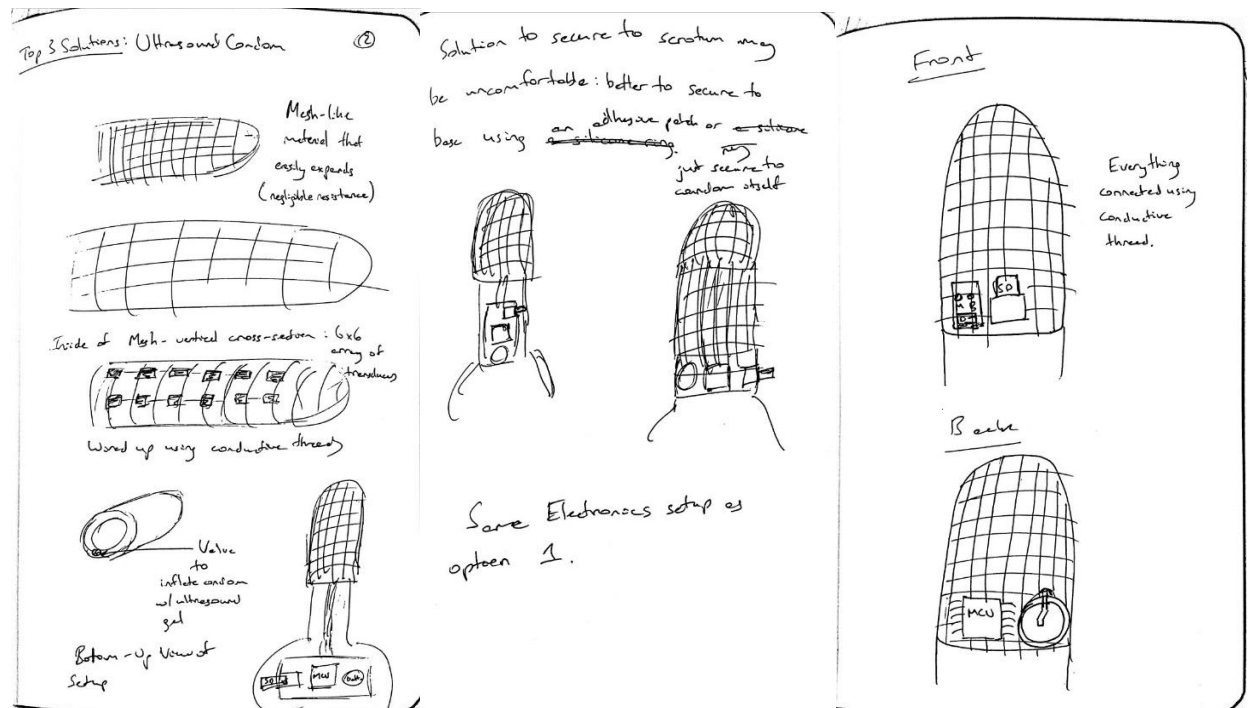 Top 3 Solutions: Ultrasound Condom
2
Mesh-like
material that
easily expands
(negligible resistance)
Inside of Mesh - vertical cross-section: 6x6
array of
transducers
Wired up using conductive thread
Valve
to
inflate condom
w/ ultrasound
gel
Bottom-Up View of
Setup
SD
MCU
Batt
Solution to secure to scrotum may
be uncomfortable: better to secure to
base using a silicone ring. an adhesive patch or a silicone
ring
just secure to
condom itself
Same Electronics setup as
option 1.
Front
Everything
connected using
conductive
thread.
SD
Back
MCU